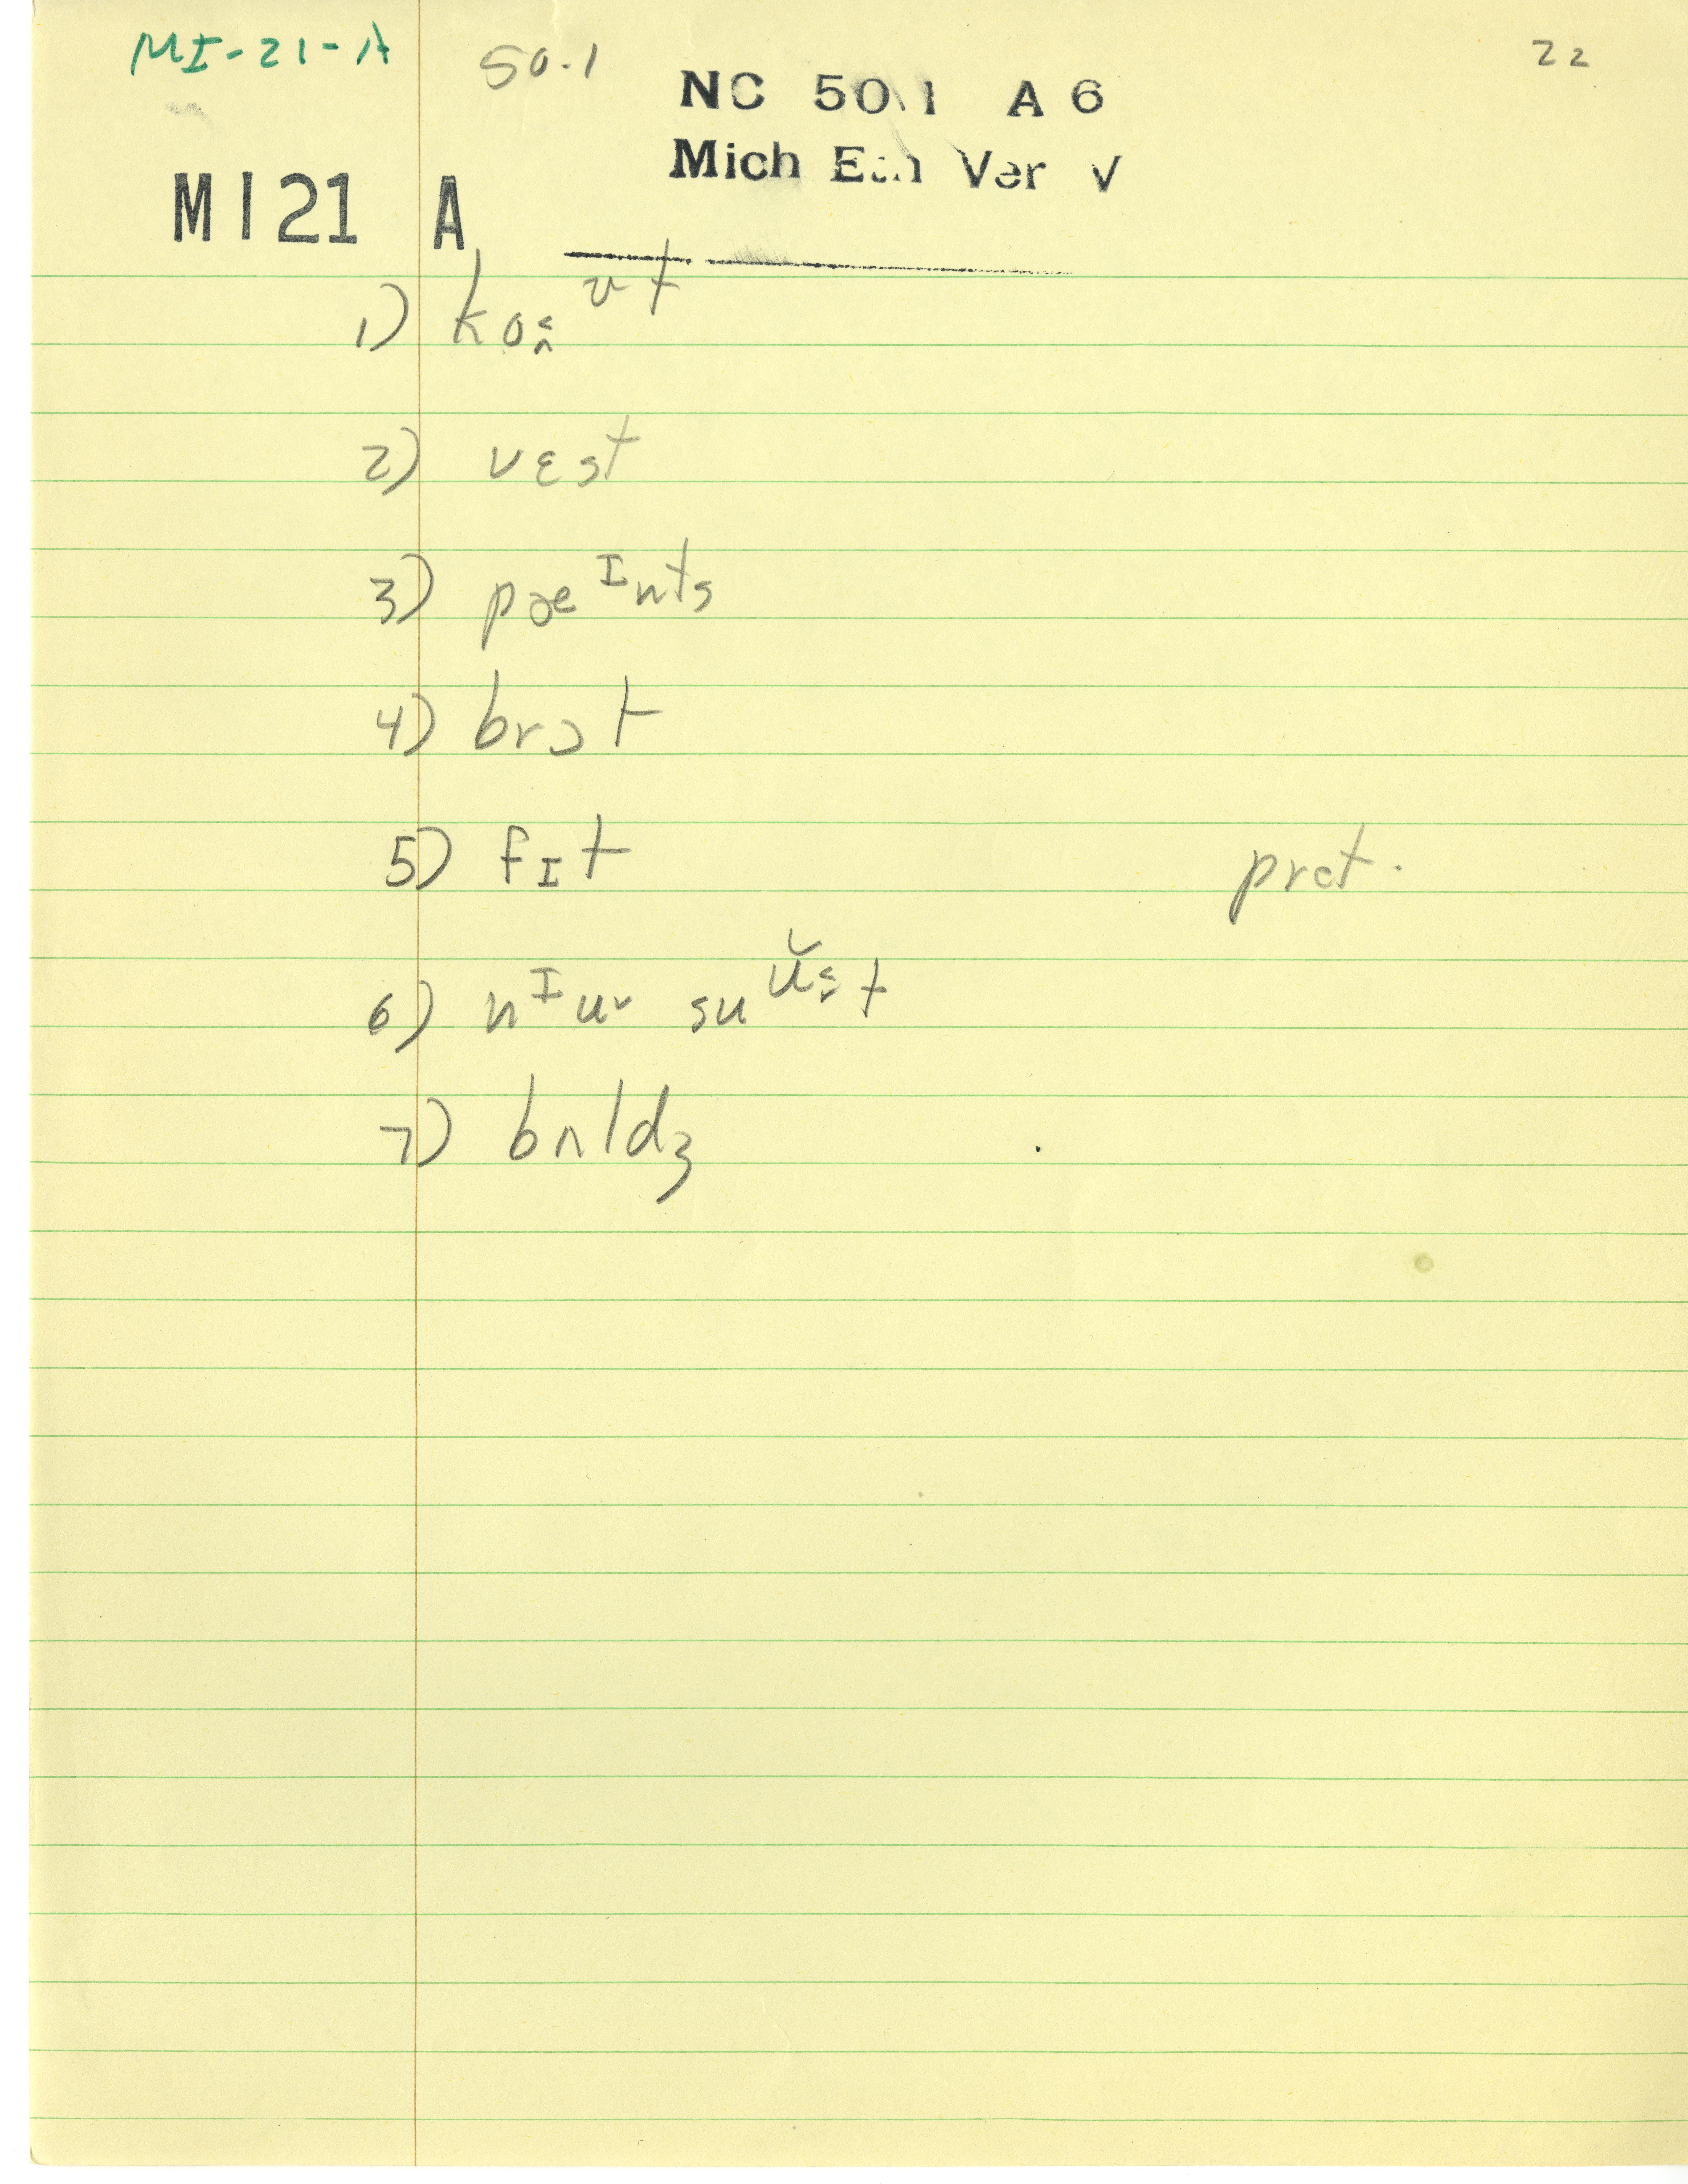 MI-21-A 50.1 22
NC 50.1 A 6
Mich Eth Ver V
MI21 A
1) ko˂˄ᶷt
2) vɛst
3) pæᴵnts
4) brɔt
5) fɪt pret.
6) nᴵu˅ suᵘ̆˂˅t
7) bʌldʒ